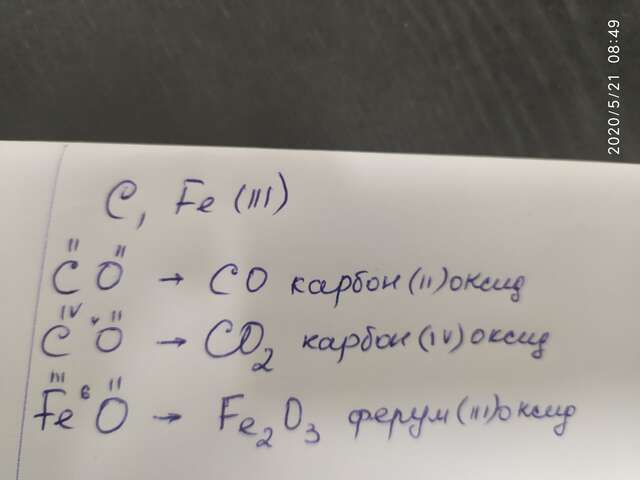 2020/5/21 08:49
C, Fe (III)
II II
C O → CO карбон (II) оксид
IV 4 II
C O → CO2 карбон (IV) оксид
III 6 II
Fe O → Fe2O3 ферум (III) оксид